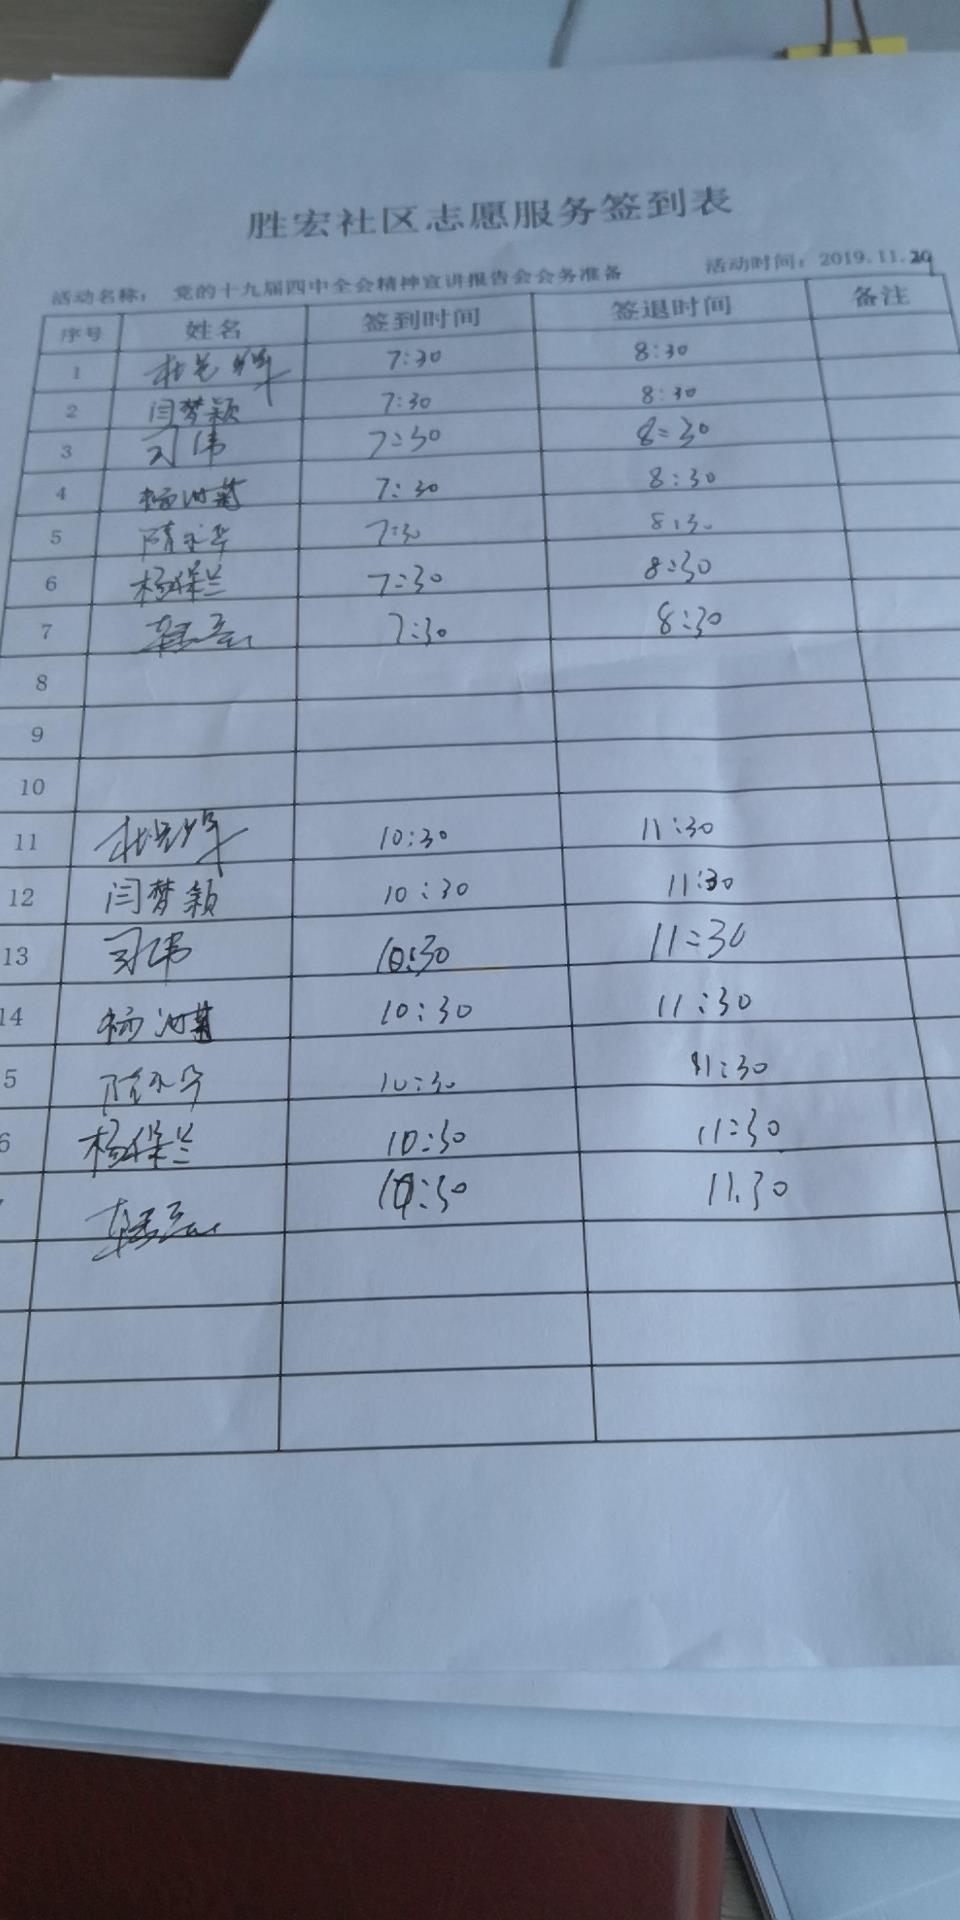 胜宏社区志愿服务签到表
活动名称： 党的十九届四中全会精神宣讲报告会会务准备 活动时间：2019.11.29
序号 姓名 签到时间 签退时间 备注
1 7:30 8:30
2 闫梦颖 7:30 8:30
3 习伟 7:30 8:30
4 7:30 8:30
5 7:30 8:30
6 杨保兰 7:30 8:30
7 7:30 8:30
8
9
10
11 10:30 11:30
12 闫梦颖 10:30 11:30
13 习伟 10:30 11:30
14 10:30 11:30
5 10:30 11:30
6 杨保兰 10:30 11:30
10:30 11.30